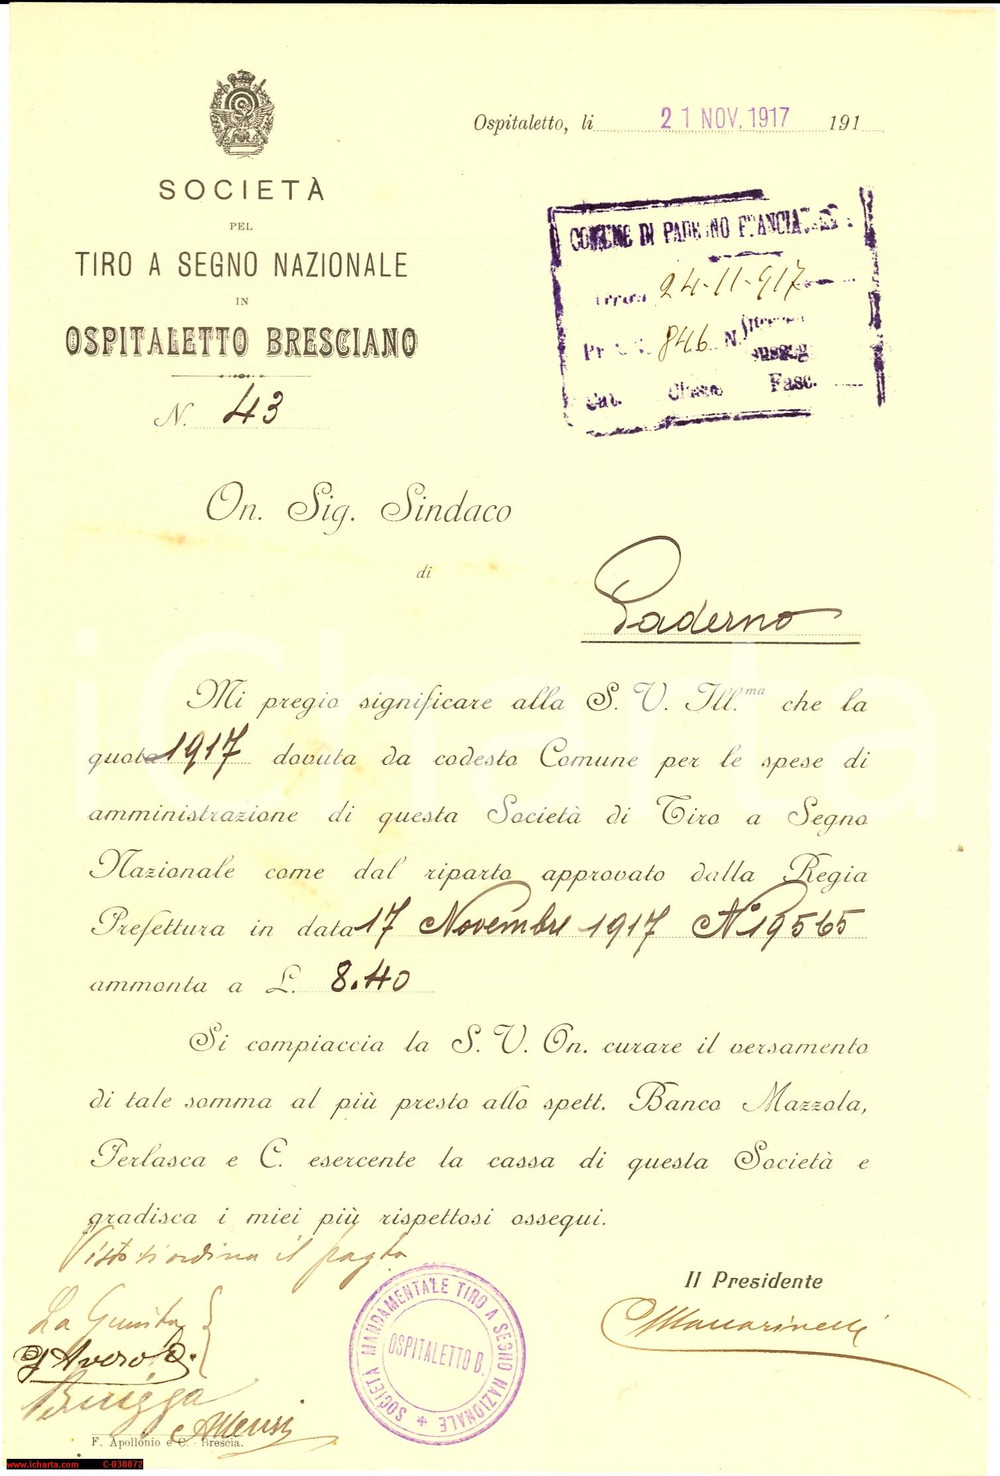 Ospitaletto, li 21 NOV. 1917 191
SOCIETÀ
PEL
TIRO A SEGNO NAZIONALE
IN
OSPITALETTO BRESCIANO
N. 43
COMUNE DI PADERNO FRANCIA
24-11-917
846 N.
Cat. Classe Fasc.
On. Sig. Sindaco
di
Paderno
Mi pregio significare alla S. V. Ill.ma che la
quota 1917 dovuta da codesto Comune per le spese di
amministrazione di questa Società di Tiro a Segno
Nazionale come dal riparto approvato dalla Regia
Prefettura in data 17 Novembre 1917 N° 19565
ammonta a L. 8.40
Si compiaccia la S. V. On. curare il versamento
di tale somma al più presto allo spett. Banco Mazzola,
Perlasca e C. esercente la cassa di questa Società e
gradisca i miei più rispettosi ossequi.
Visto si ordina il pagto
Il Presidente
La Giunta
SOCIETÀ MANDAMENTALE TIRO A SEGNO NAZIONALE
OSPITALETTO B.
F. Apollonio e C. - Brescia.
www.icharta.com C-030872
iCharta